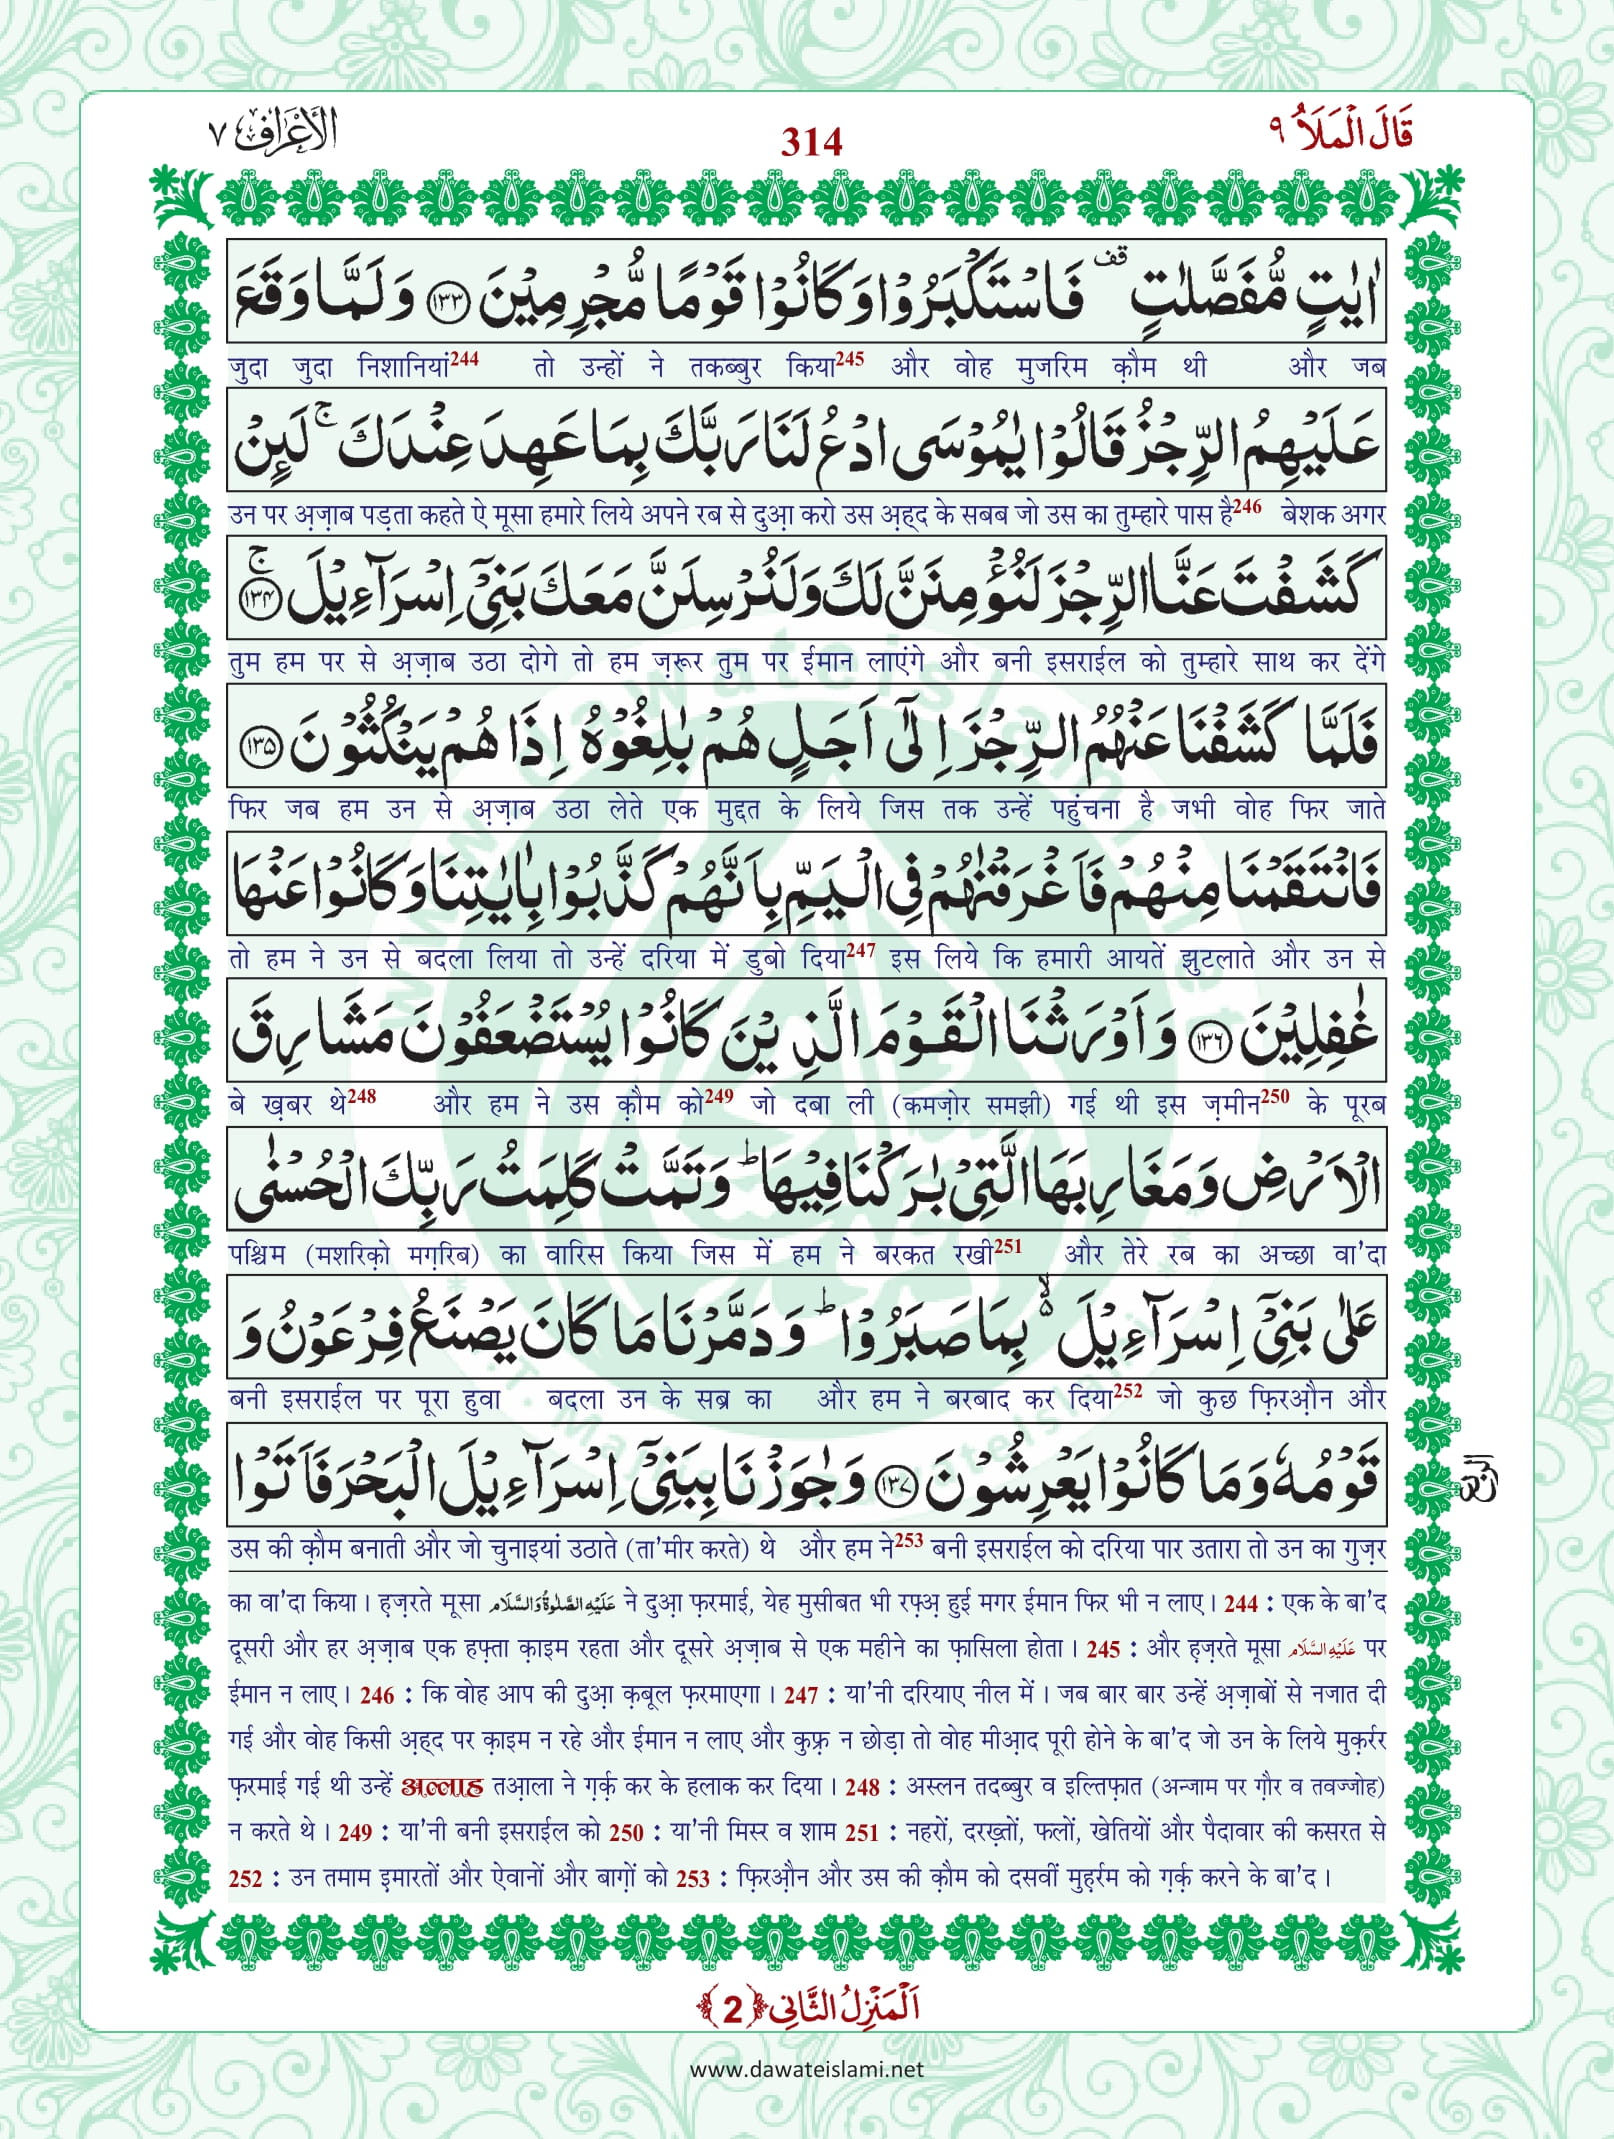 قَالَ الْمَلَاُ ٩
314
الْاَعْرَاف ٧
اٰیٰتٍ مُّفَصَّلٰتٍ قف فَاسْتَكْبَرُوْا وَ كَانُوْا قَوْمًا مُّجْرِمِیْنَ ﴿۱۳۳﴾ وَ لَمَّا وَقَعَ
जुदा जुदा निशानियां244 तो उन्हों ने तकब्बुर किया245 और वोह मुजरिम क़ौम थी और जब
عَلَیْهِمُ الرِّجْزُ قَالُوْا یٰمُوْسَى ادْعُ لَنَا رَبَّكَ بِمَا عَهِدَ عِنْدَكَ ۚ لَىِٕنْ
उन पर अ़ज़ाब पड़ता कहते ऐ मूसा हमारे लिये अपने रब से दुआ़ करो उस अ़ह्द के सबब जो उस का तुम्हारे पास है246 बेशक अगर
كَشَفْتَ عَنَّا الرِّجْزَ لَنُؤْمِنَنَّ لَكَ وَ لَنُرْسِلَنَّ مَعَكَ بَنِیْۤ اِسْرَآءِیْلَ ۚ﴿۱۳۴﴾
तुम हम पर से अ़ज़ाब उठा दोगे तो हम ज़रूर तुम पर ईमान लाएंगे और बनी इसराईल को तुम्हारे साथ कर देंगे
فَلَمَّا كَشَفْنَا عَنْهُمُ الرِّجْزَ اِلٰۤى اَجَلٍ هُمْ بٰلِغُوْهُ اِذَا هُمْ یَنْكُثُوْنَ ﴿۱۳۵﴾
फिर जब हम उन से अ़ज़ाब उठा लेते एक मुद्दत के लिये जिस तक उन्हें पहुंचना है जभी वोह फिर जाते
فَانْتَقَمْنَا مِنْهُمْ فَاَغْرَقْنٰهُمْ فِی الْیَمِّ بِاَنَّهُمْ كَذَّبُوْا بِاٰیٰتِنَا وَ كَانُوْا عَنْهَا
तो हम ने उन से बदला लिया तो उन्हें दरिया में डुबो दिया247 इस लिये कि हमारी आयतें झुटलाते और उन से
غٰفِلِیْنَ ﴿۱۳۶﴾ وَ اَوْرَثْنَا الْقَوْمَ الَّذِیْنَ كَانُوْا یُسْتَضْعَفُوْنَ مَشَارِقَ
बे ख़बर थे248 और हम ने उस क़ौम को249 जो दबा ली (कमज़ोर समझी) गई थी इस ज़मीन250 के पूरब
الْاَرْضِ وَ مَغَارِبَهَا الَّتِیْ بٰرَكْنَا فِیْهَا ؕ وَ تَمَّتْ كَلِمَتُ رَبِّكَ الْحُسْنٰى
पश्चिम (मशरिक़ो मग़रिब) का वारिस किया जिस में हम ने बरकत रखी251 और तेरे रब का अच्छा वा'दा
عَلٰى بَنِیْۤ اِسْرَآءِیْلَ ۙ۬ بِمَا صَبَرُوْا ؕ وَ دَمَّرْنَا مَا كَانَ یَصْنَعُ فِرْعَوْنُ وَ
बनी इसराईल पर पूरा हुवा बदला उन के सब्र का और हम ने बरबाद कर दिया252 जो कुछ फ़िरऔ़न और
قَوْمُهٗ وَ مَا كَانُوْا یَعْرِشُوْنَ ﴿۱۳۷﴾ وَ جٰوَزْنَا بِبَنِیْۤ اِسْرَآءِیْلَ الْبَحْرَ فَاَتَوْا
الربع
उस की क़ौम बनाती और जो चुनाइयां उठाते (ता'मीर करते) थे और हम ने253 बनी इसराईल को दरिया पार उतारा तो उन का गुज़र
का वा'दा किया। ह़ज़रते मूसा عَلَيْهِ الصَّلٰوةُ وَالسَّلَام ने दुआ़ फ़रमाई, येह मुसीबत भी रफ़्अ़ हुई मगर ईमान फिर भी न लाए। 244 : एक के बा'द
दूसरी और हर अ़ज़ाब एक हफ़्ता क़ाइम रहता और दूसरे अ़ज़ाब से एक महीने का फ़ासिला होता। 245 : और ह़ज़रते मूसा عَلَيْهِ السَّلَام पर
ईमान न लाए। 246 : कि वोह आप की दुआ़ क़बूल फ़रमाएगा। 247 : या'नी दरियाए नील में। जब बार बार उन्हें अ़ज़ाबों से नजात दी
गई और वोह किसी अ़ह्द पर क़ाइम न रहे और ईमान न लाए और कुफ़्र न छोड़ा तो वोह मीआ़द पूरी होने के बा'द जो उन के लिये मुक़र्रर
फ़रमाई गई थी उन्हें अल्लाह तआ़ला ने ग़र्क़ कर के हलाक कर दिया। 248 : अस्लन तदब्बुर व इल्तिफ़ात (अन्जाम पर ग़ौर व तवज्जोह)
न करते थे। 249 : या'नी बनी इसराईल को 250 : या'नी मिस्र व शाम 251 : नहरों, दरख़्तों, फलों, खेतियों और पैदावार की कसरत से
252 : उन तमाम इ़मारतों और ऐवानों और बाग़ों को 253 : फ़िरऔ़न और उस की क़ौम को दसवीं मुह़र्रम को ग़र्क़ करने के बा'द।
اَلْمَنْزِلُ الثَّانِی ﴿2﴾
www.dawateislami.net